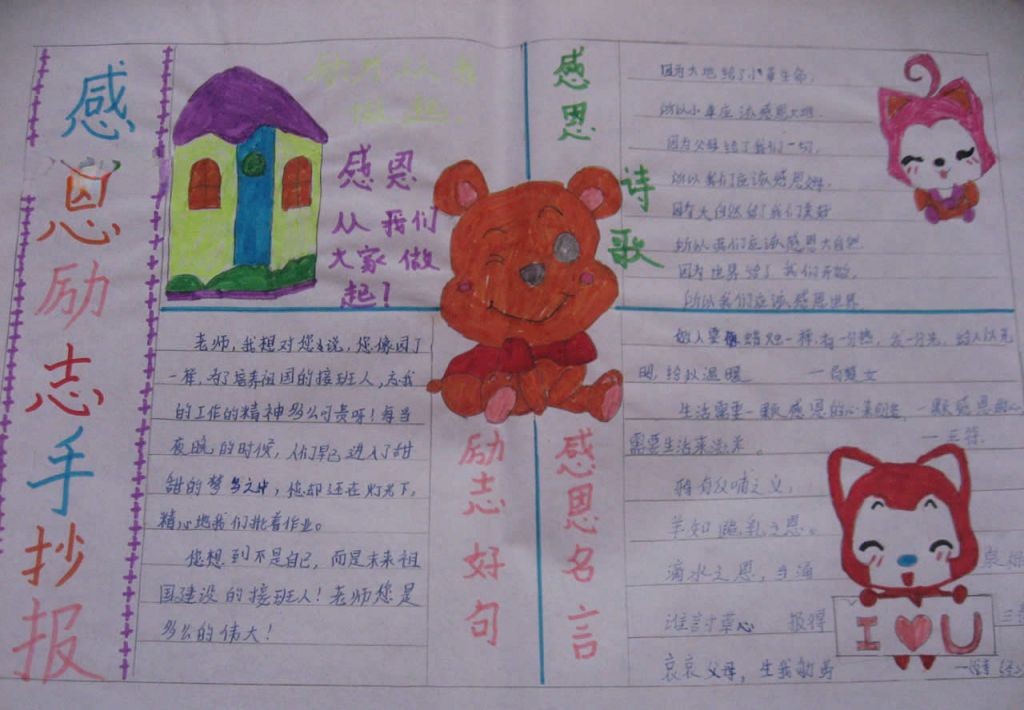 感恩励志手抄报
感恩
从我们
大家做
起！
老师，我想对您说，您像园丁
一样，为了培养祖国的接班人，
的工作的精神多么可贵呀！每当
夜晚的时候，人们早已进入了甜
甜的梦乡之中，您却还在灯光下，
精心地我们批着作业。
您想到不是自己，而是未来祖
国建设的接班人！老师您是
多么的伟大！
感恩
诗
歌
因为大地给了小草生命，
所以小草应该感恩大地。
因为父母给了我们一切，
所以我们应该感恩父母。
因为大自然给了我们美好
所以我们应该感恩大自然
因为世界给了我们开始，
所以我们应该感恩世界
励志好句
感恩名言
做人要像蜡烛一样，有一分热，发一分光，给人以光
明，给以温暖
生活需要一颗感恩的心来创造，一颗感恩的心
需要生活来滋养。
鸦有反哺之义，
羊知跪乳之恩。
滴水之恩，当涌
泉
报得
哀哀父母，生我劬劳
I U